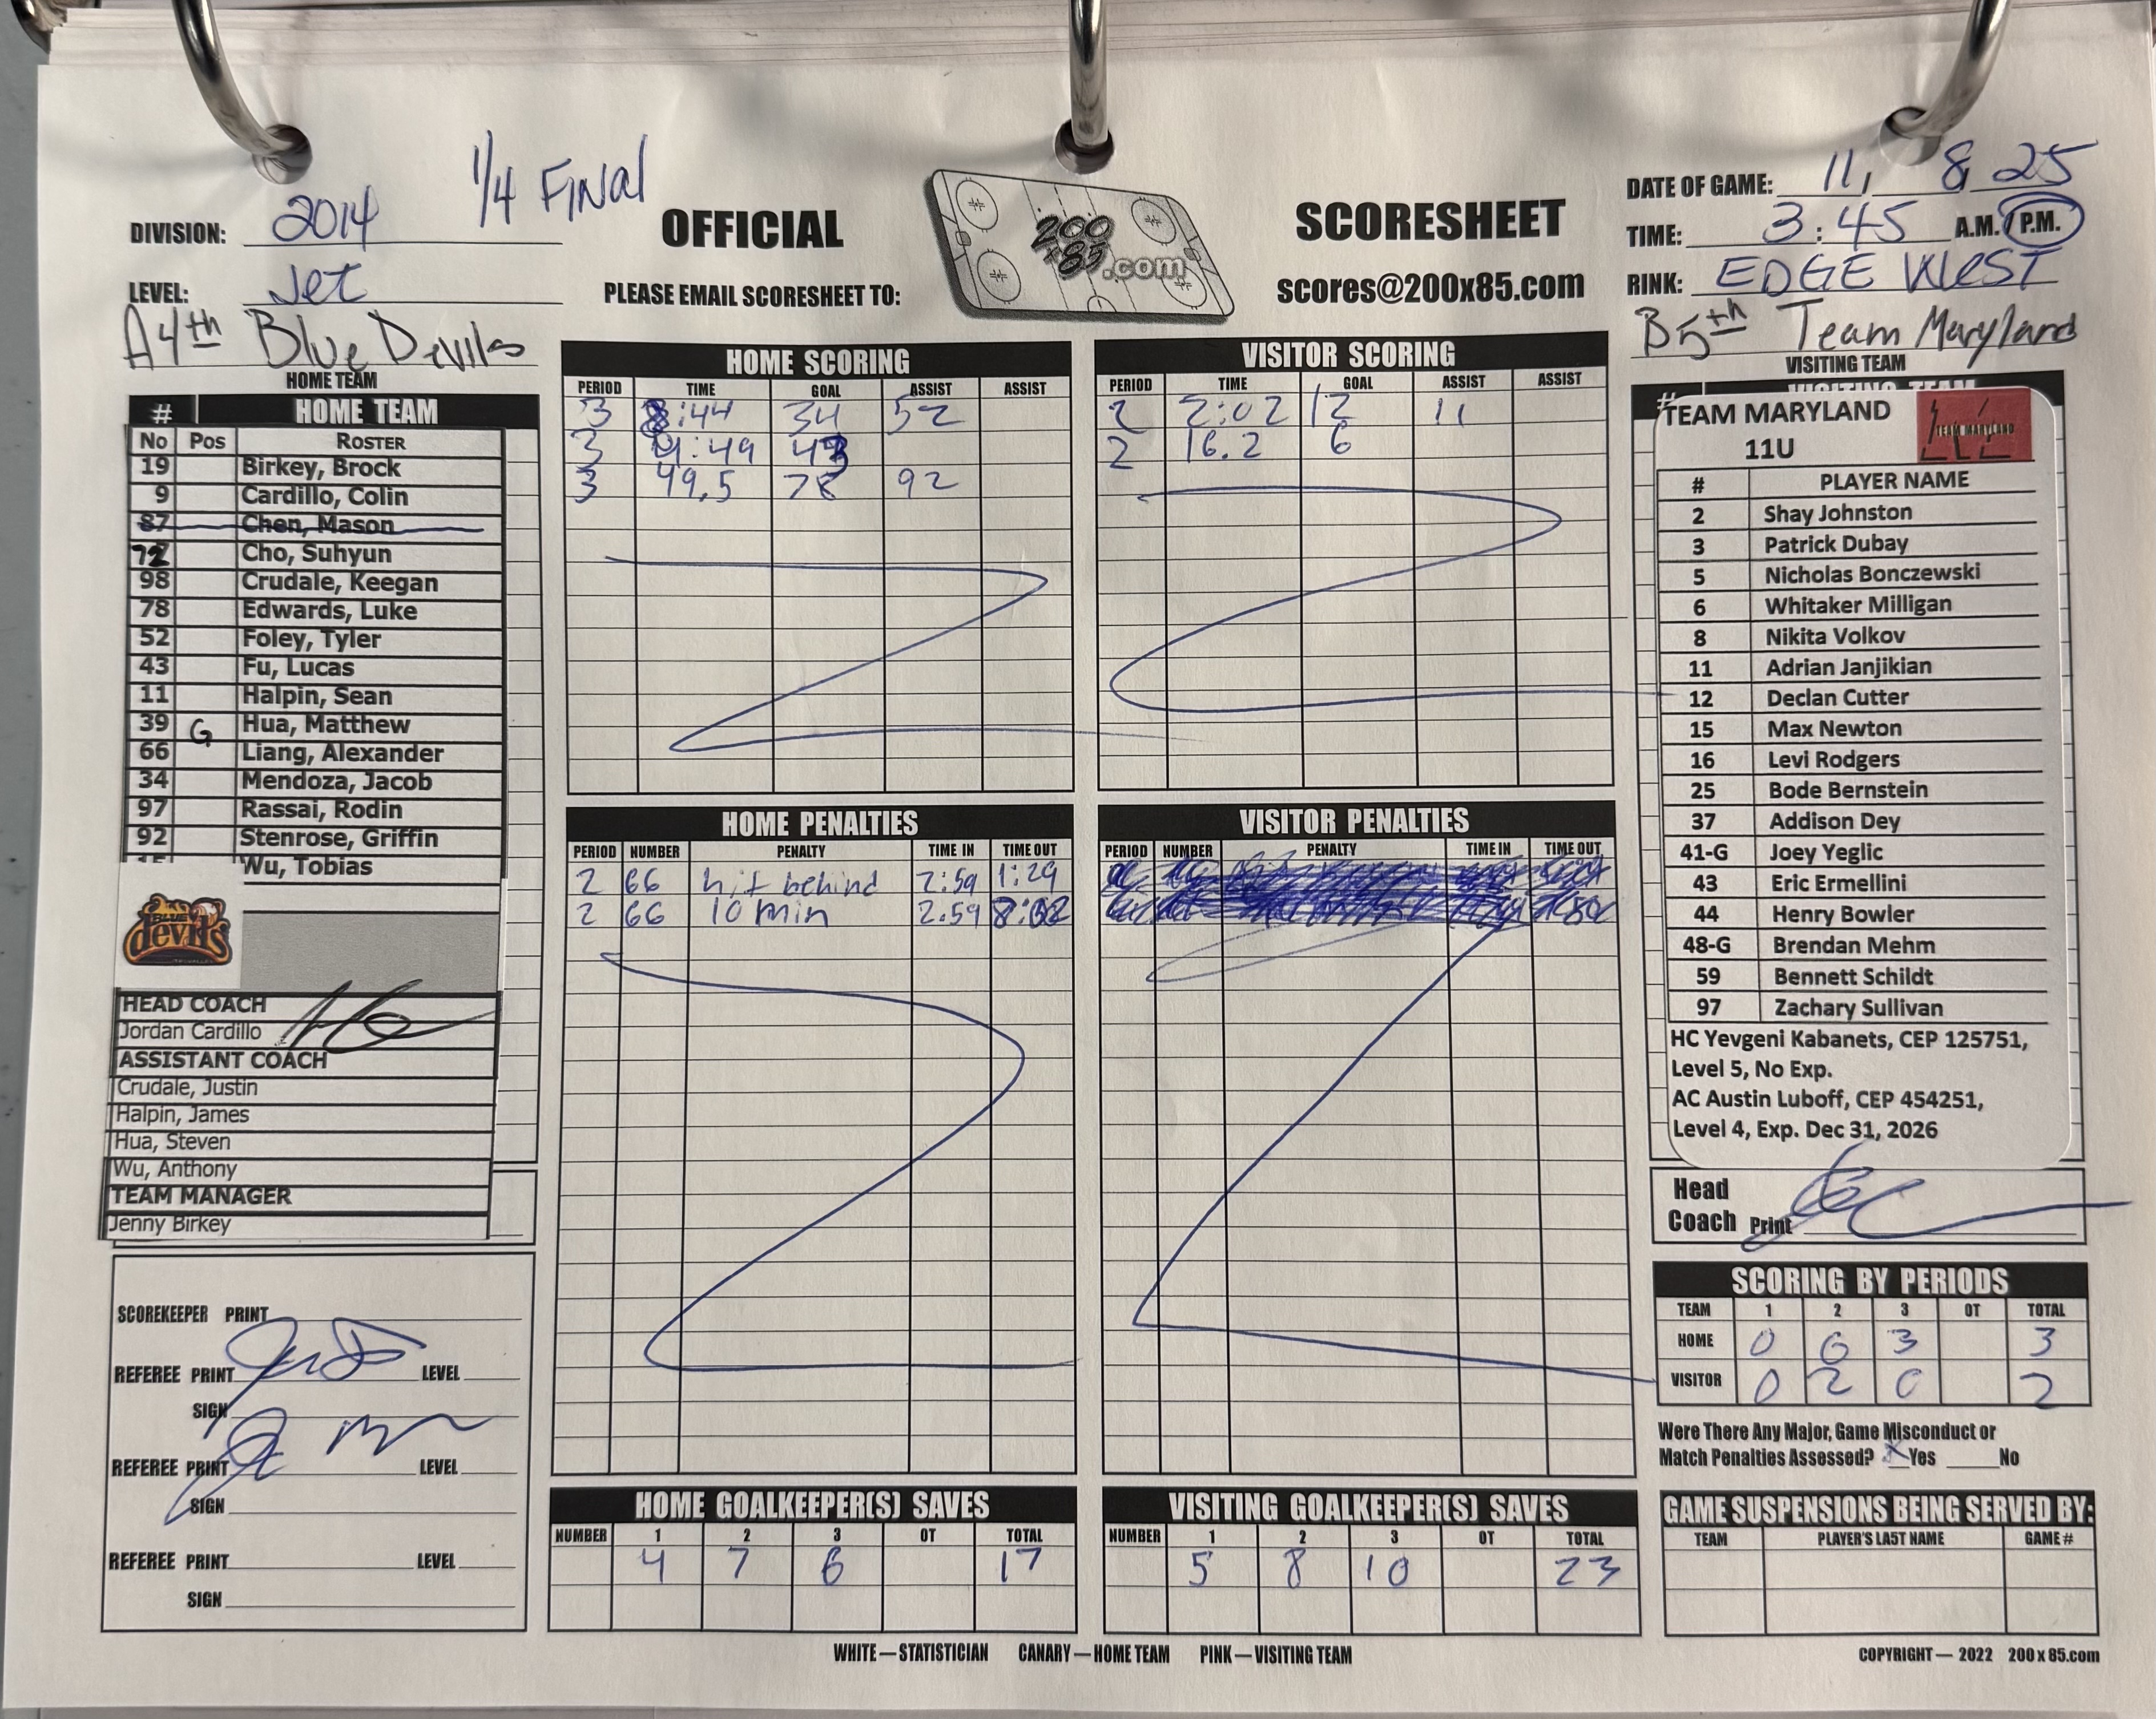 1/4 Final
DIVISION: 2014
OFFICIAL
200 x 85 .com
SCORESHEET
DATE OF GAME: 11, 8, 25
TIME: 3:45 A.M. / P.M.
LEVEL: Jet
PLEASE EMAIL SCORESHEET TO:
scores@200x85.com
RINK: EDGE WEST
A4th Blue Devils
HOME TEAM
B5th Team Maryland
VISITING TEAM
# HOME TEAM
No Pos ROSTER
19 Birkey, Brock
9 Cardillo, Colin
87 Chen, Mason
72 Cho, Suhyun
98 Crudale, Keegan
78 Edwards, Luke
52 Foley, Tyler
43 Fu, Lucas
11 Halpin, Sean
39 G Hua, Matthew
66 Liang, Alexander
34 Mendoza, Jacob
97 Rassai, Rodin
92 Stenrose, Griffin
Wu, Tobias
BLUE devils
HEAD COACH
Jordan Cardillo
ASSISTANT COACH
Crudale, Justin
Halpin, James
Hua, Steven
Wu, Anthony
TEAM MANAGER
Jenny Birkey
SCOREKEEPER PRINT
REFEREE PRINT LEVEL
SIGN
REFEREE PRINT LEVEL
SIGN
REFEREE PRINT LEVEL
SIGN
HOME SCORING
PERIOD TIME GOAL ASSIST ASSIST
3 8:44 34 52
3 4:49 43
3 49.5 78 92
VISITOR SCORING
PERIOD TIME GOAL ASSIST ASSIST
2 2:02 12 11
2 16.2 6
HOME PENALTIES
PERIOD NUMBER PENALTY TIME IN TIME OUT
2 66 hit behind 2:59 1:29
2 66 10 min 2:59
VISITOR PENALTIES
PERIOD NUMBER PENALTY TIME IN TIME OUT
HOME GOALKEEPER(S) SAVES
NUMBER 1 2 3 OT TOTAL
4 7 6 17
VISITING GOALKEEPER(S) SAVES
NUMBER 1 2 3 OT TOTAL
5 8 10 23
# VISITING TEAM
TEAM MARYLAND
11U
TEAM MARYLAND
# PLAYER NAME
2 Shay Johnston
3 Patrick Dubay
5 Nicholas Bonczewski
6 Whitaker Milligan
8 Nikita Volkov
11 Adrian Janjikian
12 Declan Cutter
15 Max Newton
16 Levi Rodgers
25 Bode Bernstein
37 Addison Dey
41-G Joey Yeglic
43 Eric Ermellini
44 Henry Bowler
48-G Brendan Mehm
59 Bennett Schildt
97 Zachary Sullivan
HC Yevgeni Kabanets, CEP 125751,
Level 5, No Exp.
AC Austin Luboff, CEP 454251,
Level 4, Exp. Dec 31, 2026
Head
Coach Print
SCORING BY PERIODS
TEAM 1 2 3 OT TOTAL
HOME 0 0 3 3
VISITOR 0 2 0 2
Were There Any Major, Game Misconduct or
Match Penalties Assessed? X Yes No
GAME SUSPENSIONS BEING SERVED BY:
TEAM PLAYER'S LAST NAME GAME #
WHITE — STATISTICIAN CANARY — HOME TEAM PINK — VISITING TEAM
COPYRIGHT — 2022 200 x 85.com